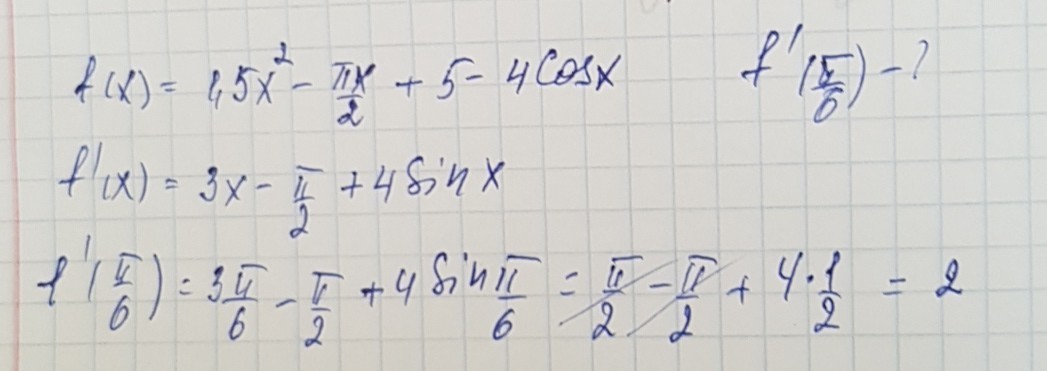 f(x) = 1,5x² - πx/2 + 5 - 4cosx f'(π/6) - ?
f'(x) = 3x - π/2 + 4 Sin x
f'(π/6) = 3π/6 - π/2 + 4 Sin π/6 = π/2 - π/2 + 4·1/2 = 2